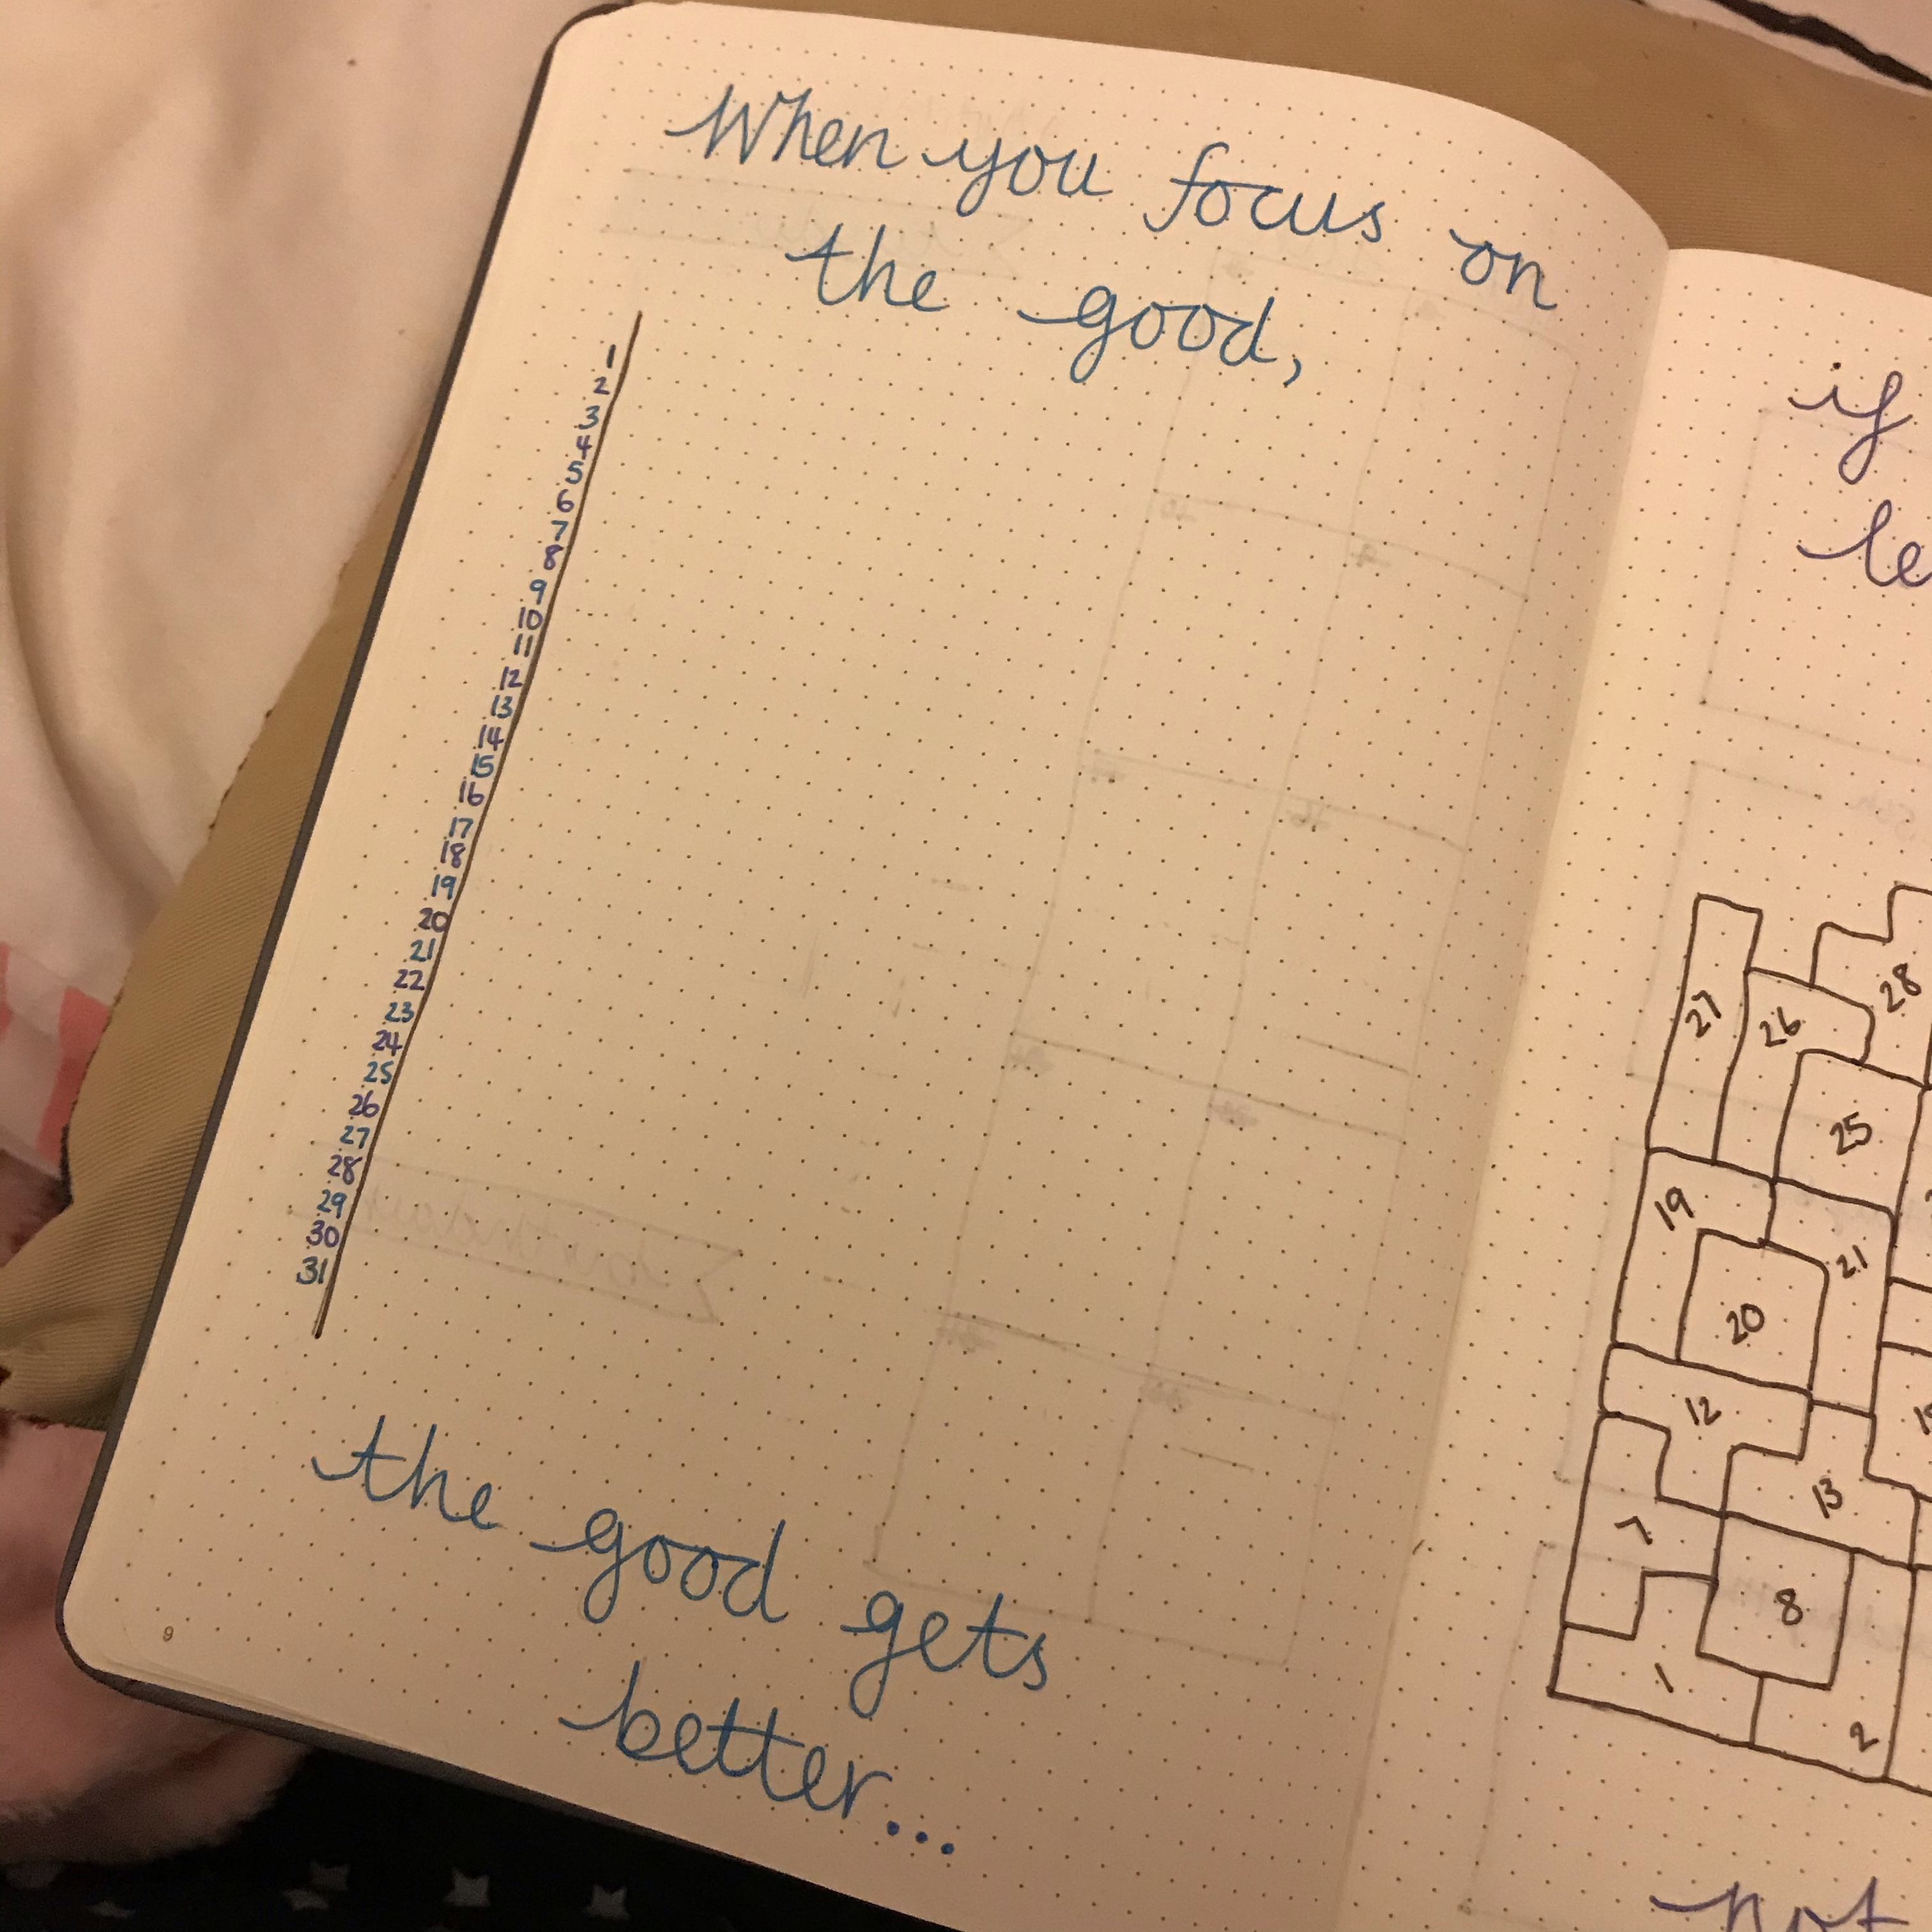 When you focus on
the good,
1
2
3
4
5
6
7
8
9
10
11
12
13
14
15
16
17
18
19
20
21
22
23
24
25
26
27
28
29
30
31
the good gets
better...
9
if
le
27
26
28
25
19
21
20
12
13
7
8
1
2
not